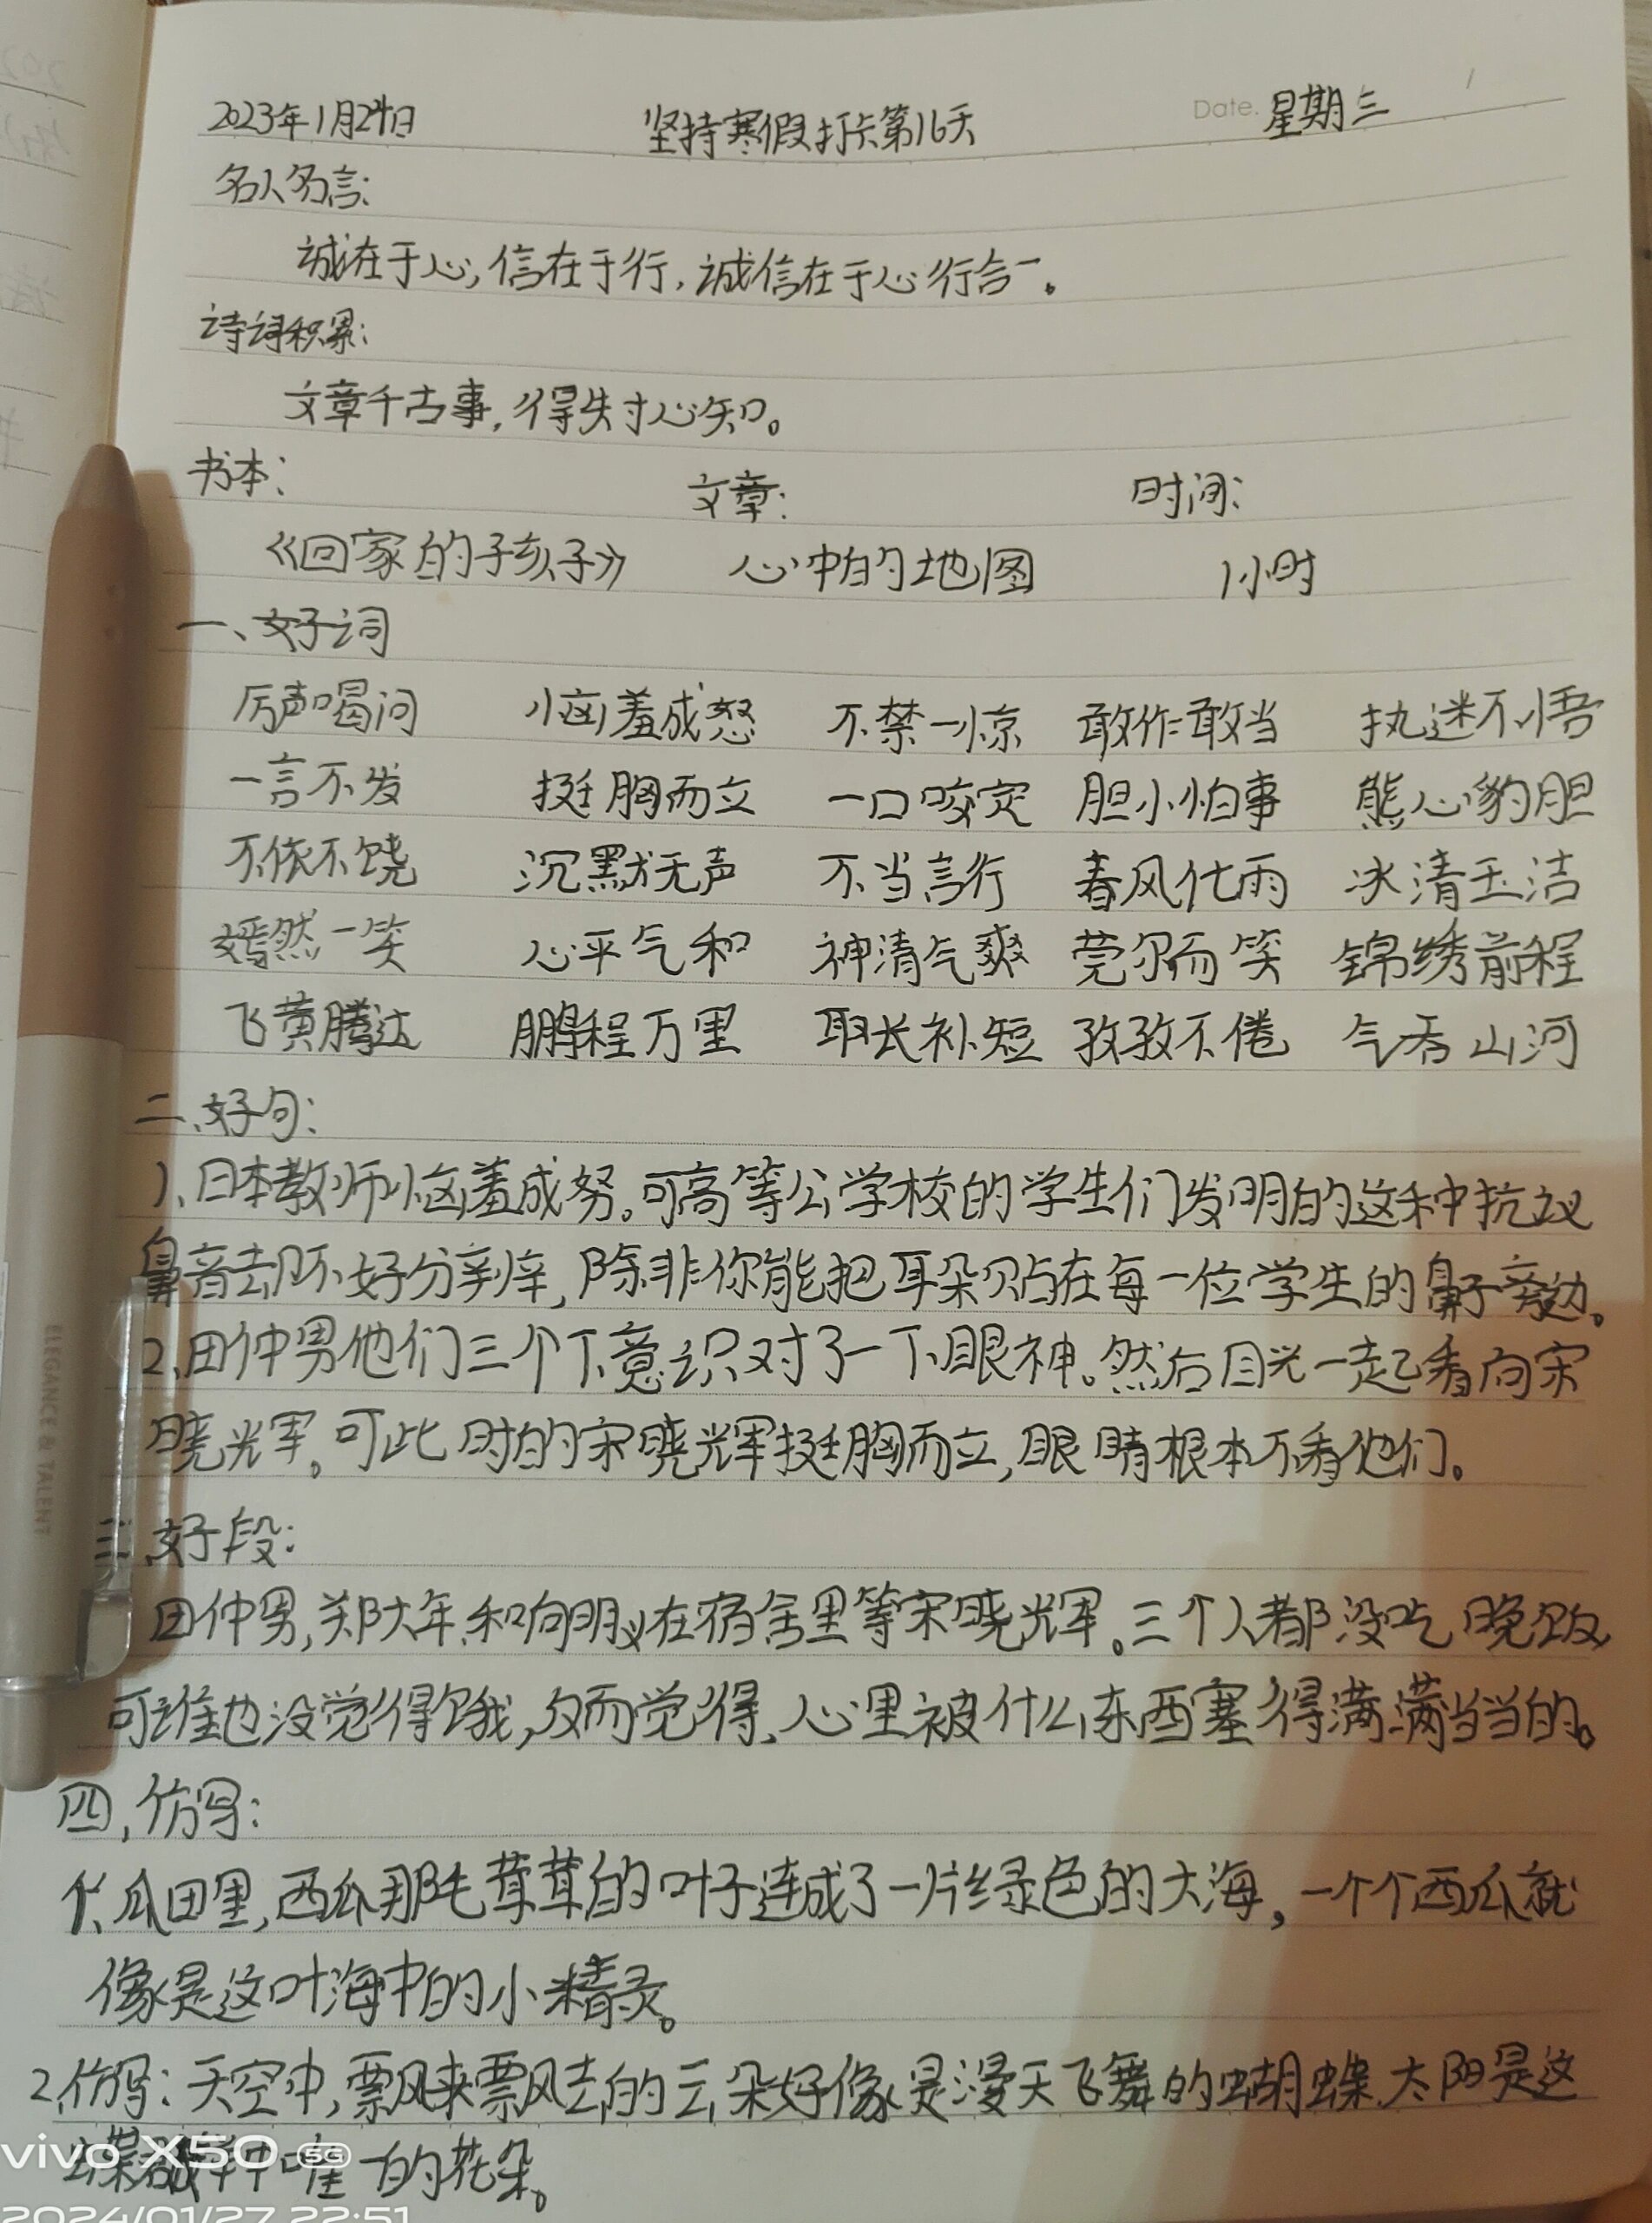 2023年1月24日 坚持寒假打卡第16天 Date. 星期三
名人名言:
诚在于心,信在于行,诚信在于心行合一。
诗词积累:
文章千古事,得失寸心知。
书本: 文章: 时间:
《回家的孩子》 心中的地图 1小时
一、好词
厉声喝问 恼羞成怒 不禁一惊 敢作敢当 执迷不悟
一言不发 挺胸而立 一口咬定 胆小怕事 熊心豹胆
不依不饶 沉默无声 不当言行 春风化雨 冰清玉洁
嫣然一笑 心平气和 神清气爽 莞尔而笑 锦绣前程
飞黄腾达 鹏程万里 取长补短 孜孜不倦 气吞山河
二、好句:
1、日本教师恼羞成努。可高等公学校的学生们发明的这种抗议
鼻音却不好分辨,除非你能把耳朵贴在每一位学生的鼻子旁边。
2、田仲男他们三个下意识对了一下眼神。然后目光一起看向宋
晓光军。可此时的宋晓辉挺胸而立,眼睛根本不看他们。
三、好段:
田仲男,郑大年和向明义在宿舍里等宋晓辉。三个人都没吃晚饭
可谁也没觉得饿,反而觉得,心里被什么东西塞得满满当当的。
四,仿写:
1、瓜田里,西瓜那毛茸茸的叶子连成了一片绿色的大海,一个个西瓜就
像是这叶海中的小精灵。
2、仿写:天空中,飘来飘去的云朵好像是漫天飞舞的蝴蝶,太阳是这
蝶群中唯一的花朵。
ELEGANCE & TALENT
vivo X50 5G
2024/01/27 22:51